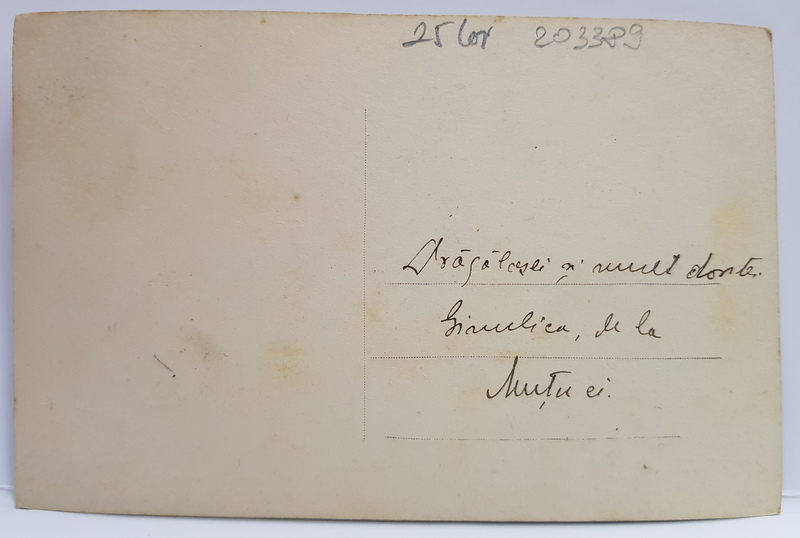 25 lei 203389
Drăgălașei și mult dorite
Gimulica, de la
Muțu ei.